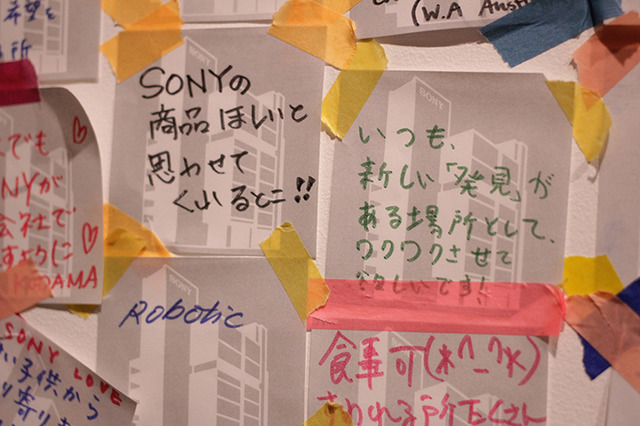 希望を
所
(W.A Aust
SONY
SONYの
商品ほしいと
思わせて
くれるとこ!!
SONY
いつも、
新しい「発見」が
ある場所として、
ワクワクさせて
欲しいです!
でも
NYが
会社で
ように
KODAMA
SONY
Robotic
SONY LOVE
子供から
り寄り
食事可(*^_^*)
さわれる所たくさん